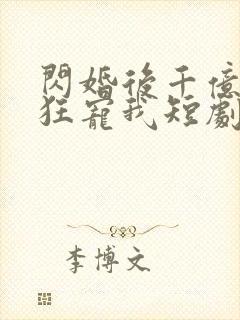 閃婚後千億
狂寵我短劇
李博文